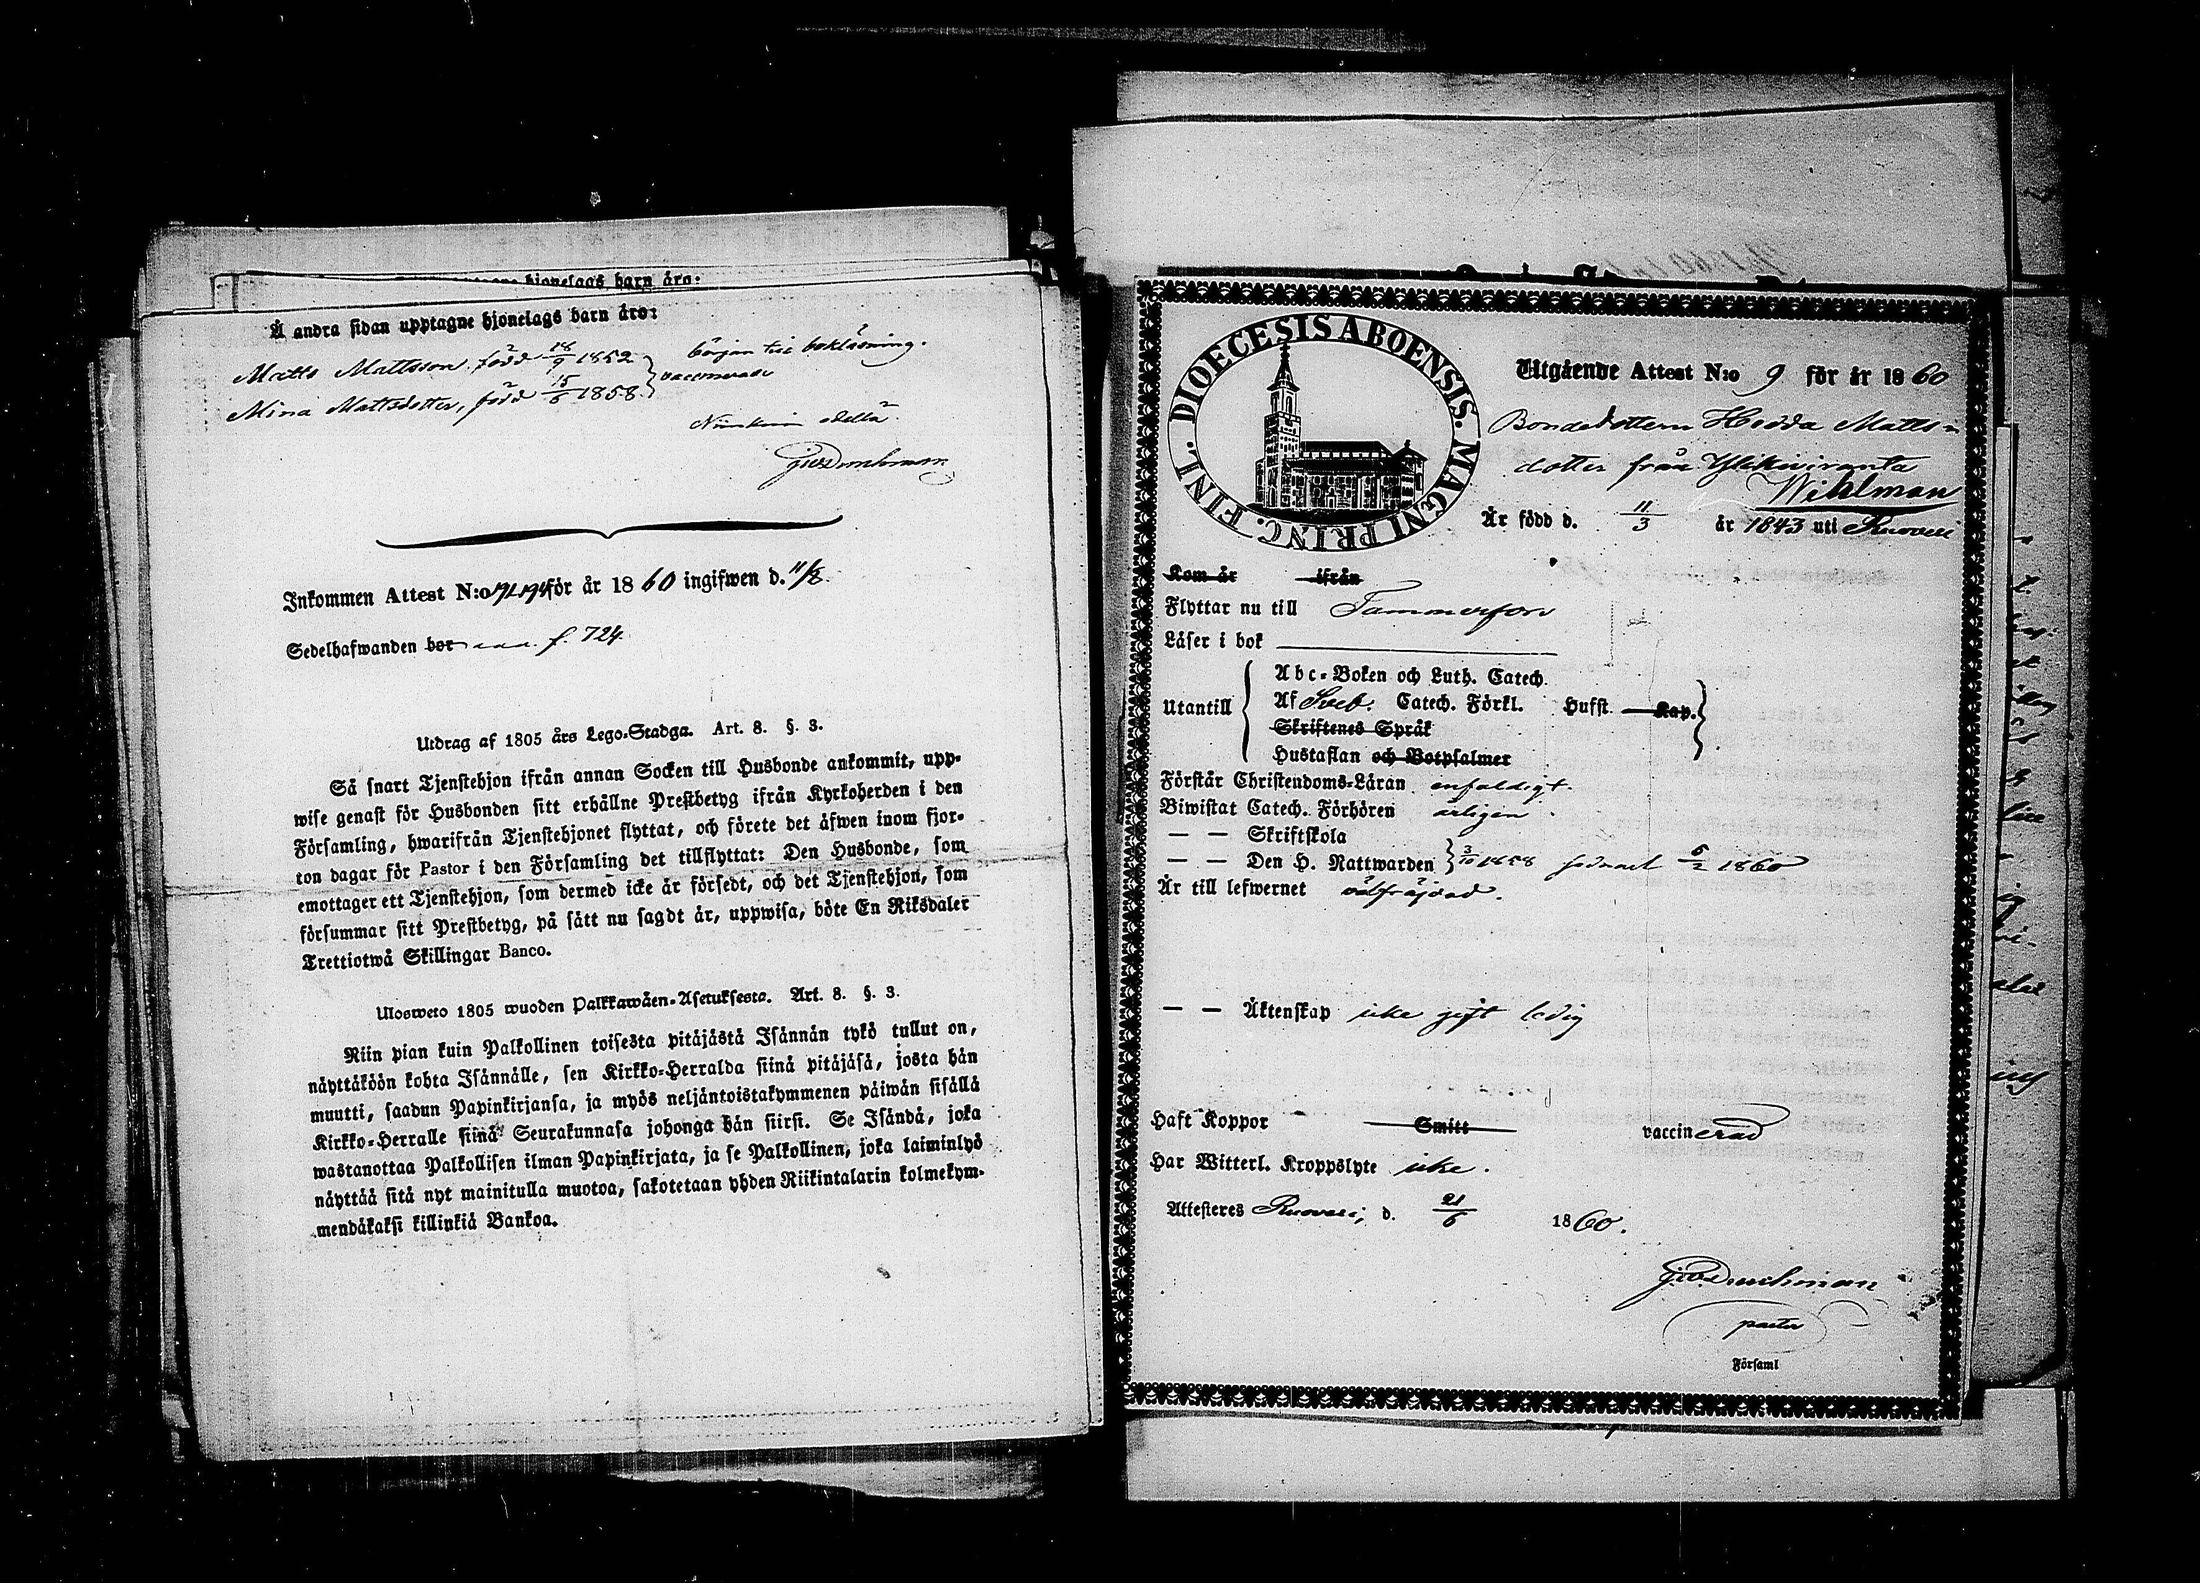 hjonelags barn äro:
Å andra sidan upptagne hjonelags barn äro:
Matts Mattsson, född 18/9 1852 } började till bokläsning.
Mina Mattsdotter, född 15/6 1858 } vaccinerade
edellä
Inkommen Attest N:o för år 1860 ingifwen d.
Sedelhafwanden bor f. 724.
Utdrag af 1805 års Lego-Stadga. Art. 8. §. 3.
Så snart Tjenstehjon ifrån annan Socken till Husbonde ankommit, upp-
wise genast för Husbonden sitt erhållne Prestbetyg ifrån Kyrkoherden i den
Församling, hwarifrån Tjenstehjonet flyttat, och förete det äfwen inom fjor-
ton dagar för Pastor i den Församling det tillflyttat: Den Husbonde, som
emottager ett Tjenstehjon, som dermed icke är försedt, och det Tjenstehjon, som
försummar sitt Prestbetyg, på sätt nu sagdt är, uppwisa, böte En Riksdaler
Trettiotwå Skillingar Banco.
Ulosweto 1805 wuoden Palkkawäen-Asetuksesta. Art. 8. §. 3.
Niin pian kuin Palkollinen toisesta pitäjästä Isännän tykö tullut on,
näyttäköön kohta Isännälle, sen Kirkko-Herralda siinä pitäjäsä, josta hän
muutti, saadun Papinkirjansa, ja myös neljäntoistakymmenen päiwän sisällä
Kirkko-Herralle siinä Seurakunnasa johonga hän siirsi. Se Isändä, joka
wastanottaa Palkollisen ilman Papinkirjata, ja se Palkollinen, joka laiminlyö
näyttää sitä nyt mainitulla muotoa, sakotetaan yhden Riikintalarin kolmekym-
mendäkaksi killinkiä Bankoa.
DIOECESIS ABOENSIS. MAGNI PRINC. FINL.
Utgående Attest N:o 9 för år 1860
Bondedottern Hedda Matts-
dotter från Ylikiviranta
Wihlman
Är född d. 11/3 år 1843 uti Ruovesi
Kom år ifrån
Flyttar nu till Tammerfors
Läser i bok
Utantill { Abc-Boken och Luth. Catech.
Af Sveb. Catech. Förkl. Husst. Kap. }
Skriftenes Språk
Hustaflan och Botpsalmer
Förstår Christendoms-Läran enfaldigt.
Biwistat Catech. Förhören årligen.
— — Skriftskola
— — Den H. Nattwarden } 3/10 1858 sednast 5/2 1860
Är till lefwernet välfräjdad.
— — Äktenskap icke gift ledig
Haft Koppor Smitt vaccinerad
Har Witterl. Kroppslyte icke.
Attesteras Ruovesi, d. 21/6 1860.
pastor
Församl